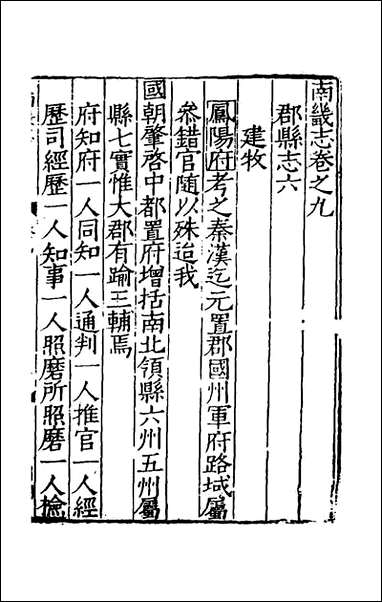 南畿志卷之九
郡縣志六
建牧
鳳陽府考之秦漢迄元置郡國州軍府路域屬
叅錯官随以殊迨我
國朝肇啓中都置府增括南北領縣六州五州屬
縣七實惟大郡有踰三輔焉
府知府一人同知一人通判一人推官一人經
歷司經歷一人知事一人照磨所照磨一人檢